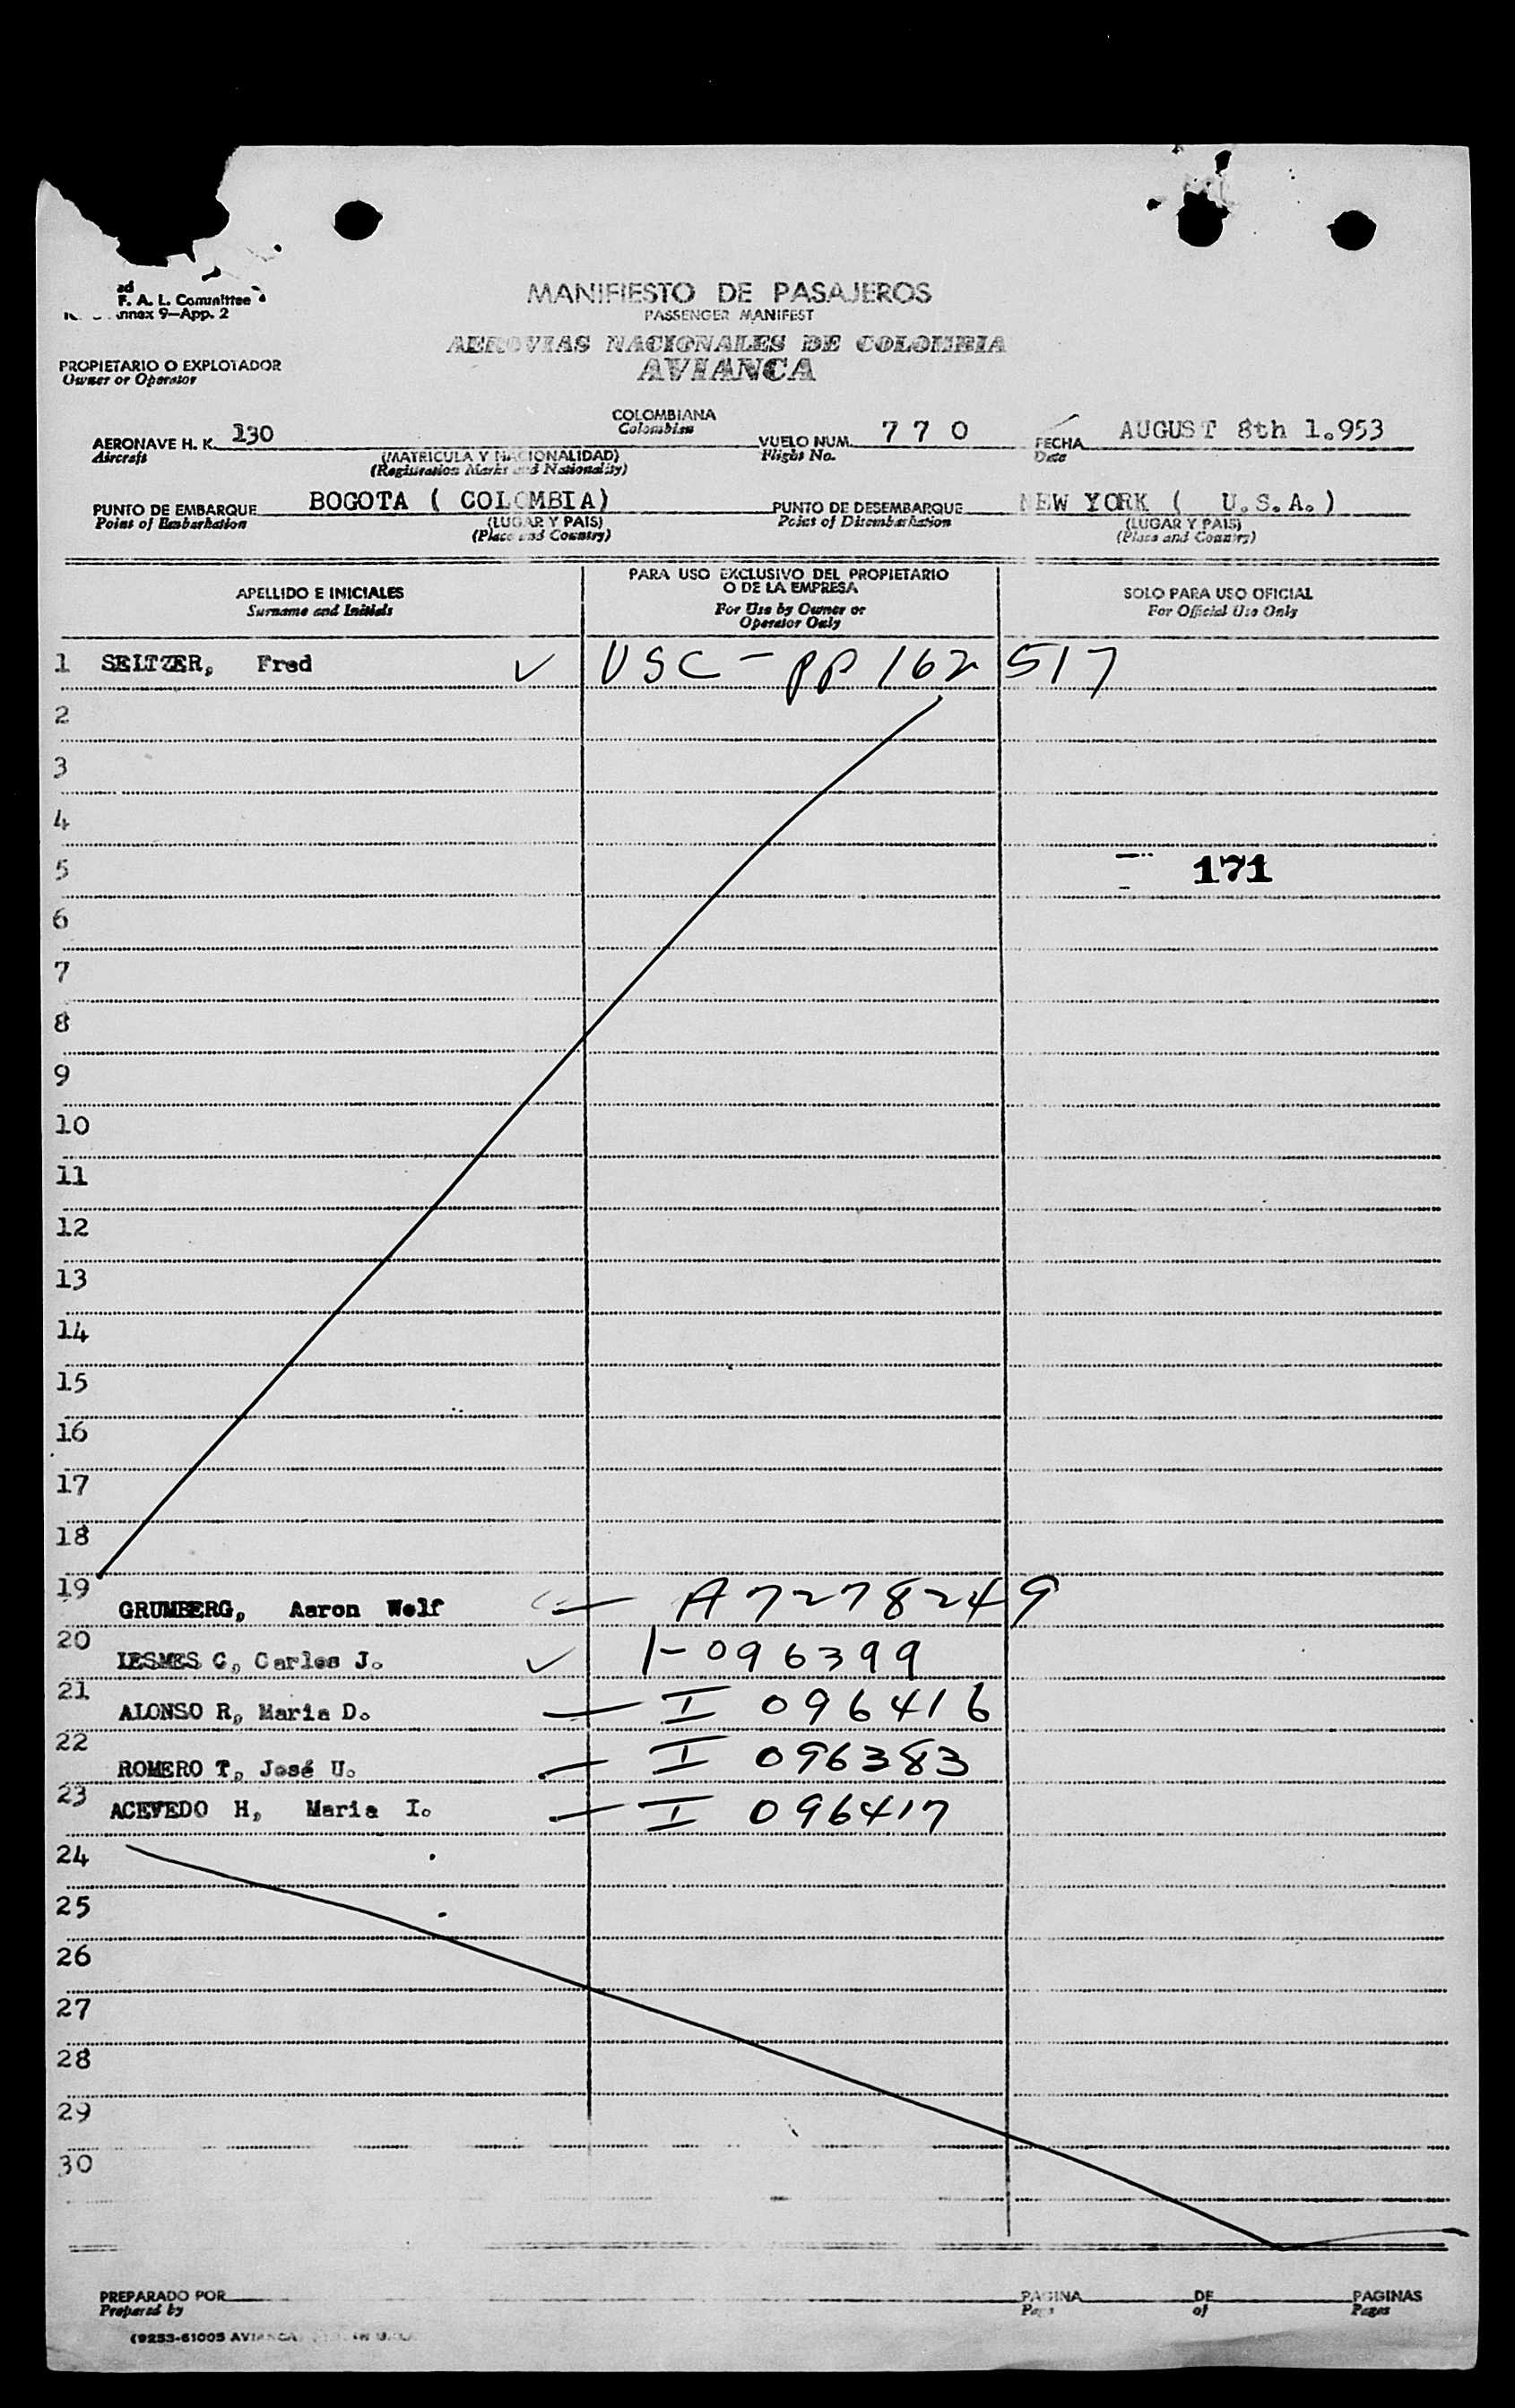 ad
F. A. L. Committee
Annex 9—App. 2
MANIFIESTO DE PASAJEROS
PASSENGER MANIFEST
AEROVIAS NACIONALES DE COLOMBIA
AVIANCA
PROPIETARIO O EXPLOTADOR
Owner or Operator
COLOMBIANA
Colombian
AERONAVE H. K. 130 VUELO NUM. 7 7 0 FECHA AUGUST 8th 1.953
Aircraft (MATRICULA Y NACIONALIDAD) Flight No. Date
(Registration Marks and Nationality)
PUNTO DE EMBARQUE BOGOTA ( COLOMBIA) PUNTO DE DESEMBARQUE NEW YORK ( U.S.A.)
Point of Embarkation (LUGAR Y PAIS) Point of Disembarkation (LUGAR Y PAIS)
(Place and Country) (Place and Country)
APELLIDO E INICIALES
Surname and Initials
PARA USO EXCLUSIVO DEL PROPIETARIO
O DE LA EMPRESA
For Use by Owner or
Operator Only
SOLO PARA USO OFICIAL
For Official Use Only
1 SELTZER, Fred ✓ USC - PP 162 517
2
3
4
5 171
6
7
8
9
10
11
12
13
14
15
16
17
18
19 GRUMBERG, Aaron Wolf — A7278249
20 LESMES C, Carlos J. ✓ I-096399
21 ALONSO R, Maria D. — I 096416
22 ROMERO T, José U. — I 096383
23 ACEVEDO H, Maria I. — I 096417
24
25
26
27
28
29
30
PREPARADO POR PAGINA DE PAGINAS
Prepared by Page of Pages
(9253-61005 AVIANCA